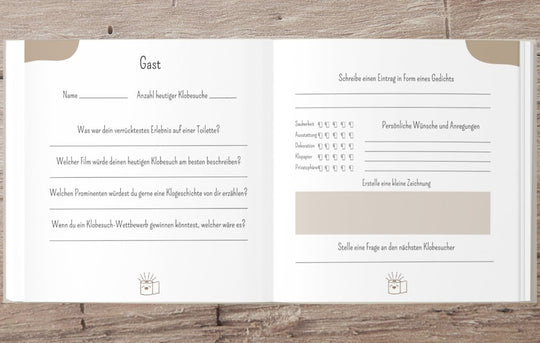 Gast
Name Anzahl heutiger Klobesuche
Was war dein verrücktestes Erlebnis auf einer Toilette?
Welcher Film würde deinen heutigen Klobesuch am besten beschreiben?
Welchen Prominenten würdest du gerne eine Klogeschichte von dir erzählen?
Wenn du ein Klobesuch-Wettbewerb gewinnen könntest, welcher wäre es?
Schreibe einen Eintrag in Form eines Gedichts
Sauberkeit
Ausstattung
Dekoration
Klopapier
Privatsphäre
Persönliche Wünsche und Anregungen
Erstelle eine kleine Zeichnung
Stelle eine Frage an den nächsten Klobesucher